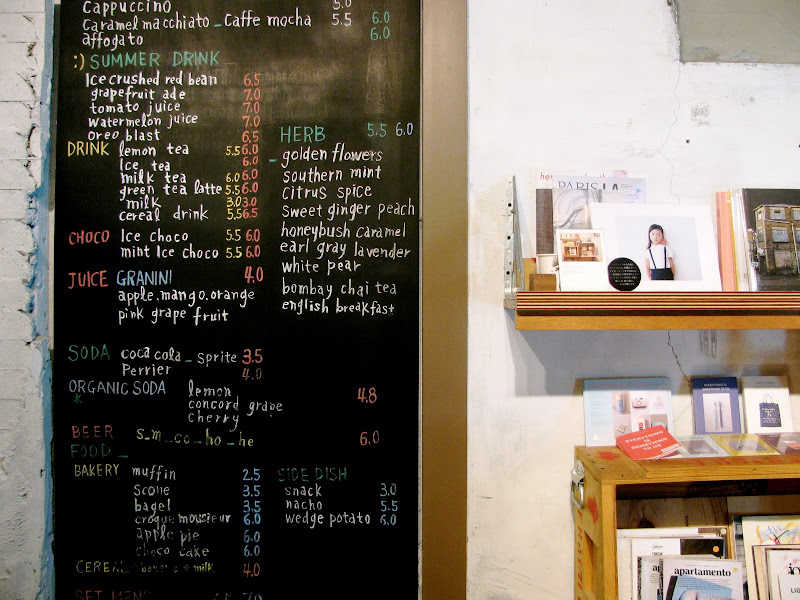 cappuccino 5.0
caramel macchiato _ caffe mocha 5.5 6.0
affogato 6.0
:) SUMMER DRINK _
Ice crushed red bean 6.5
grapefruit ade 7.0
tomato juice 7.0
watermelon juice 7.0
oreo blast 6.5
DRINK lemon tea 5.5 6.0
Ice tea 6.0
milk tea 6.0 6.0
green tea latte 5.5 6.0
milk 3.0 3.0
cereal drink 5.5 6.5
CHOCO Ice choco 5.5 6.0
mint Ice choco 5.5 6.0
JUICE GRANINI 4.0
apple.mango.orange
pink grape fruit
SODA coca cola _ sprite 3.5
Perrier 4.0
ORGANIC SODA lemon
* concord grape 4.8
cherry
BEER s_m_ca_ho_he 6.0
FOOD _
BAKERY muffin 2.5
scone 3.5
bagel 3.5
croque monsieur 6.0
apple pie 6.0
choco cake 6.0
CEREAL milk 4.0
SET MENU 7.0
HERB 5.5 6.0
_ golden flowers
southern mint
citrus spice
sweet ginger peach
honeybush caramel
earl gray lavender
white pear
bombay chai tea
english breakfast
SIDE DISH
snack 3.0
nacho 5.5
wedge potato 6.0
EVERYTHING IS
SOMETHING
TO US
apartamento
apartamento